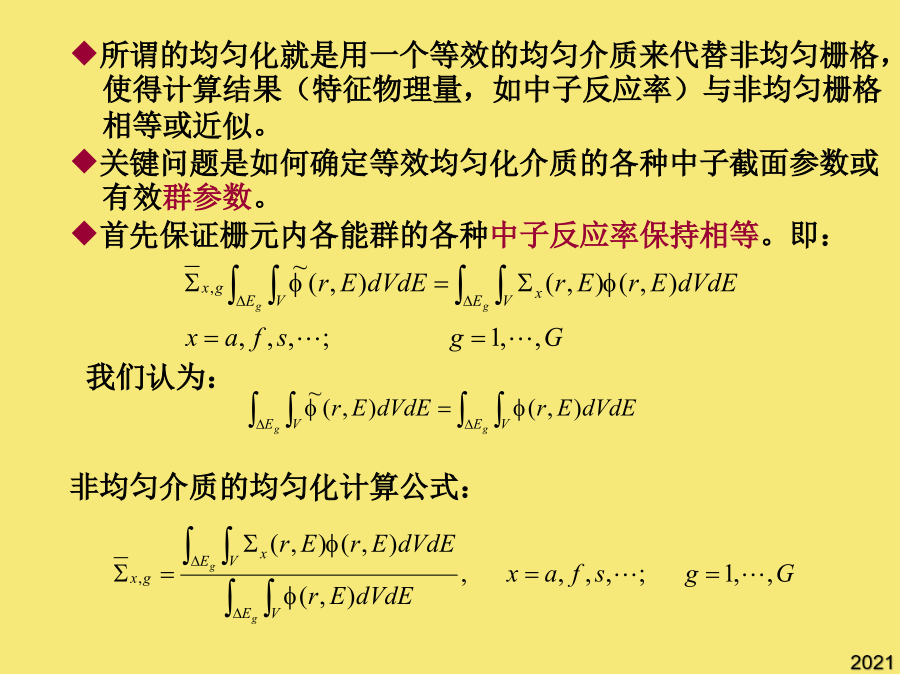 ◆所谓的均匀化就是用一个等效的均匀介质来代替非均匀栅格，
使得计算结果（特征物理量，如中子反应率）与非均匀栅格
相等或近似。
◆关键问题是如何确定等效均匀化介质的各种中子截面参数或
有效群参数。
◆首先保证栅元内各能群的各种中子反应率保持相等。即：
$\overline{\Sigma}_{x,g}\int_{\Delta E_g}\int_V \tilde{\phi}(r,E)dVdE = \int_{\Delta E_g}\int_V \Sigma_x(r,E)\phi(r,E)dVdE$
$x = a, f, s, \cdots; \quad g = 1, \cdots, G$
我们认为：
$\int_{\Delta E_g}\int_V \tilde{\phi}(r,E)dVdE = \int_{\Delta E_g}\int_V \phi(r,E)dVdE$
非均匀介质的均匀化计算公式：
$\overline{\Sigma}_{x,g} = \frac{\int_{\Delta E_g}\int_V \Sigma_x(r,E)\phi(r,E)dVdE}{\int_{\Delta E_g}\int_V \phi(r,E)dVdE}, \quad x = a, f, s, \cdots; \quad g = 1, \cdots, G$
2021